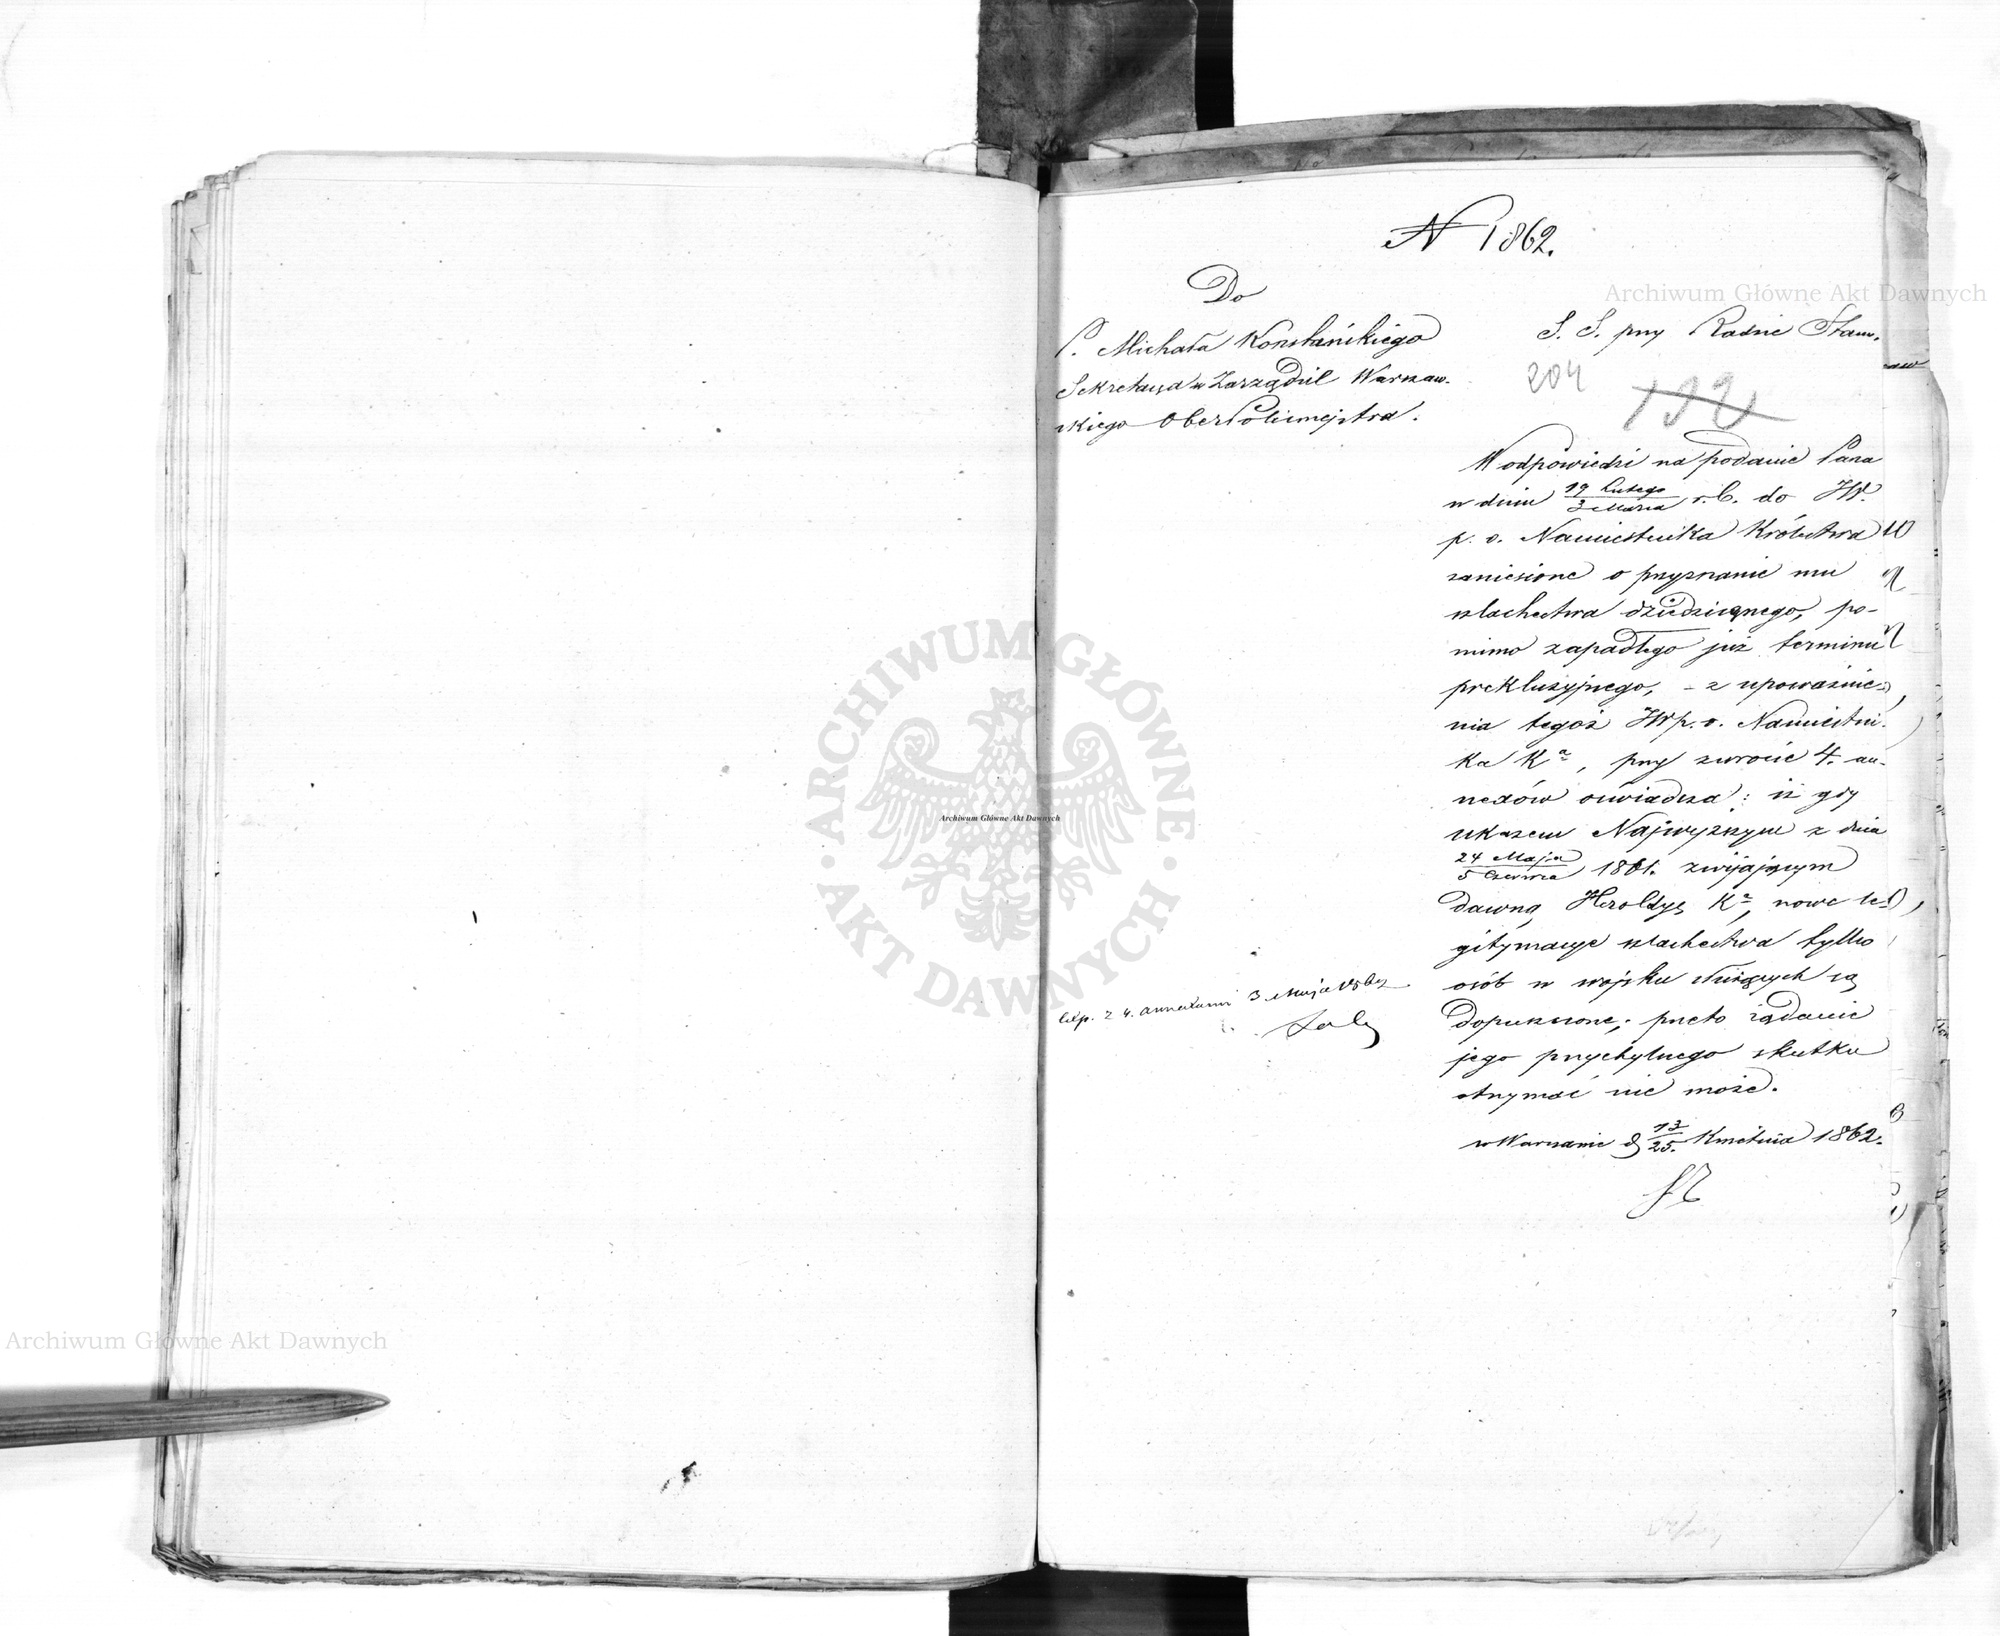 N 1862.
Do
P. Michała Konstańskiego
Sekretarza w Zarządzie Warszaw-
skiego OberPolicmejstra.
S. S. przy Radzie Stanu.
204
192
W odpowiedzi na podanie Pana
w dniu 19 Lutego / 3 Marca r. b. do JW.
p. o. Namiestnika Królestwa
zaniesione o przyznanie mu
szlachectwa dziedzicznego, po-
mimo zapadłego już terminu
prekluzyjnego, – z upoważnie-
nia tegoż JW p. o. Namiestni-
ka Kª, przy zwrocie 4. an-
nexów oświadcza: iż gdy
ukazem Najwyższym z dnia
24 Maja / 5 Czerwca 1861. zwijającym
dawną Heroldyę Kª, nowe le-
gitymacye szlachectwa tylko
osób w wojsku służących są
dopuszczone; przeto żądanie
jego przychylnego skutku
otrzymać nie może.
w Warszawie d 13/25. Kwietnia 1862.
Exp. z 4. annexami 3 Maja 1862
Archiwum Główne Akt Dawnych
ARCHIWUM GŁÓWNE AKT DAWNYCH
Archiwum Główne Akt Dawnych
Archiwum Główne Akt Dawnych